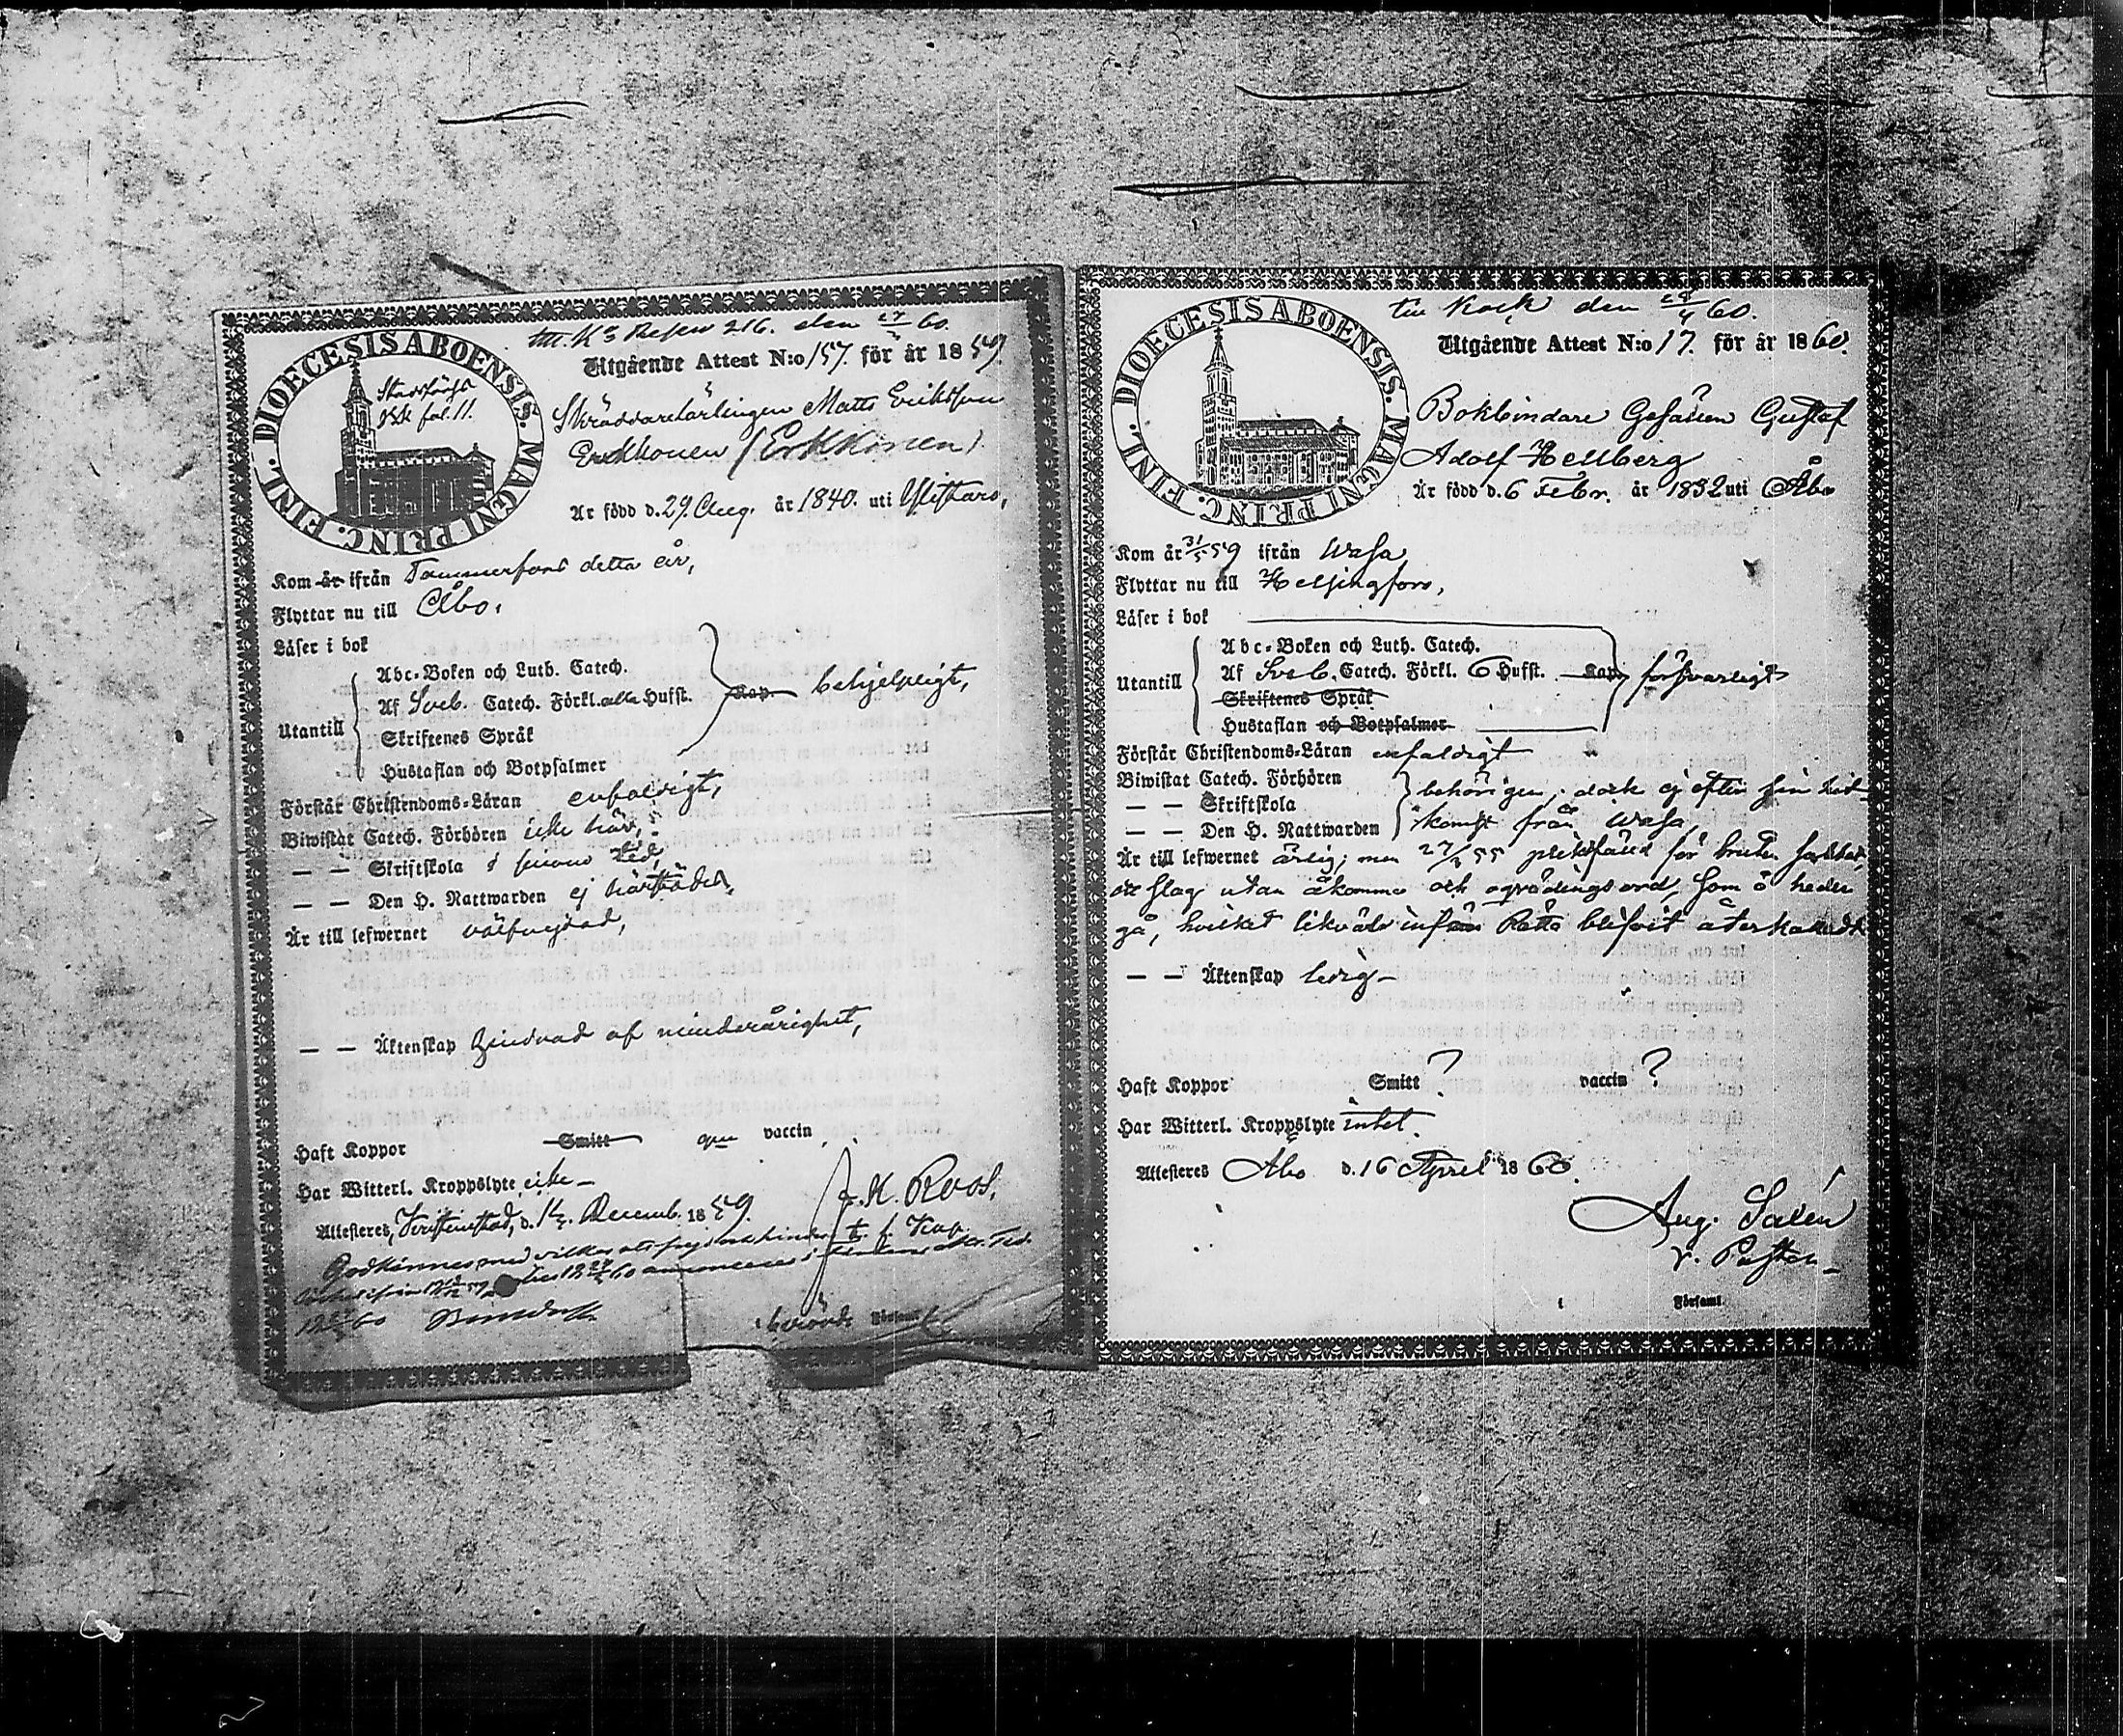 DIOECESIS ABOENSIS. MAGNI PRINC. FINL.
fol. 11.
216. den 60.
Utgående Attest N:o 157. för år 1859.
Skräddarelärlingen Matts Eriksson
Erkkonen (Erkkonen).
Är född d. 29. Aug. år 1840. uti
Kom år ifrån Tammerfors detta år,
Flyttar nu till Åbo.
Läser i bok
Utantill
Abc-Boken och Luth. Catech.
Af Sveb. Catech. Förkl. alla Hufst. Kap. behjelpligt,
Skriftenes Språk
Hustaflan och Botpsalmer
Förstår Christendoms-Läran enfaldigt,
Biwistat Catech. Förhören icke här,
— — Skriftskola i
— — Den H. Nattwarden ej härstädes,
Är till lefwernet välfrejdad,
— — Äktenskap hindrad af minderårighet,
Haft Koppor Smitt vaccin
Har Witterl. Kroppslyte icke –
Attesteres, d. Decemb. 1859.
J. K. Roos,
t. f. Kap.
Godkännes med
60
Församl.
DIOECESIS ABOENSIS. MAGNI PRINC. FINL.
till Kock den 24/4 60.
Utgående Attest N:o 17. för år 1860.
Bokbindare Gesällen Gustaf
Adolf Hellberg
Är född d. 6 Febr. år 1832 uti Åbo
Kom år 31/5 59 ifrån Wasa,
Flyttar nu till Helsingfors,
Läser i bok
Utantill
Abc-Boken och Luth. Catech.
Af Sveb. Catech. Förkl. 6 Hufst. Kap. försvarligt
Skriftenes Språk
Hustaflan och Botpsalmer
Förstår Christendoms-Läran enfaldigt
Biwistat Catech. Förhören
— — Skriftskola behörigen, dock ej efter sin hit-
— — Den H. Nattwarden komst från Wasa,
Är till lefwernet ärlig; men 27/2 55 pliktfälld för
slag utan åkomma och som å heder
gå, hvilket likväl inför Rätta blifvit återkalladt
— — Äktenskap ledig –
Haft Koppor Smitt ? vaccin ?
Har Witterl. Kroppslyte intet.
Attesteres Åbo d. 16 April 1860.
Aug. Salén
v. Pastor –
i Församl.